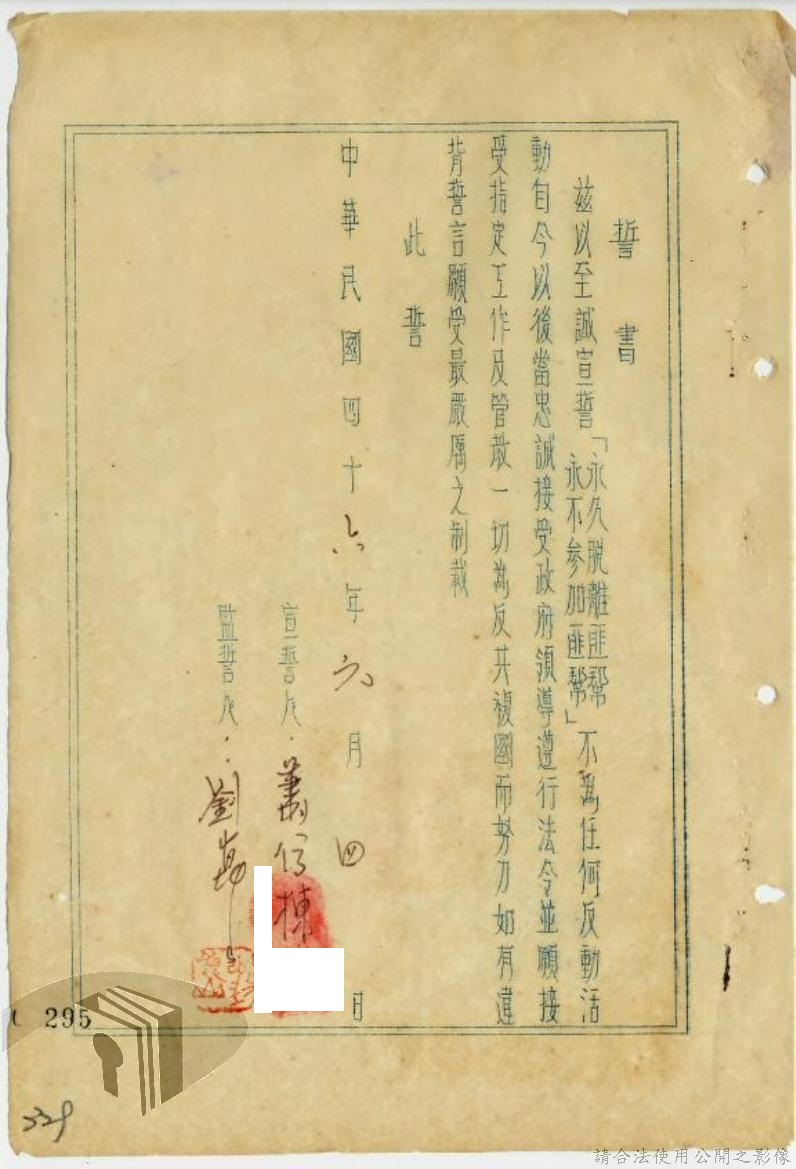 誓書
茲以至誠宣誓「永久脫離匪幫
永不參加匪幫」不為任何反動活
動自今以後當忠誠接受政府領導遵行法令並願接
受指定工作及管敎一切為反共複國而努力如有違
背誓言願受最嚴厲之制裁
此誓
中華民國四十六年六月四日
宣誓人：蕭信棟
監誓人：劉
295
請合法使用公開之影像